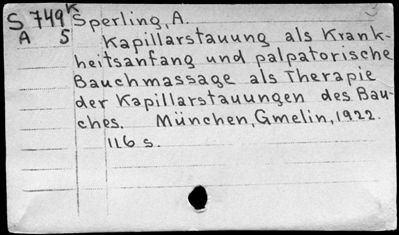 S 749 K Sperling, A.
A 5 Kapillarstauung als Krank-
heitsanfang und palpatorische
Bauchmassage als Therapie
der Kapillarstauungen des Bau-
ches. München, Gmelin, 1922.
116 s.